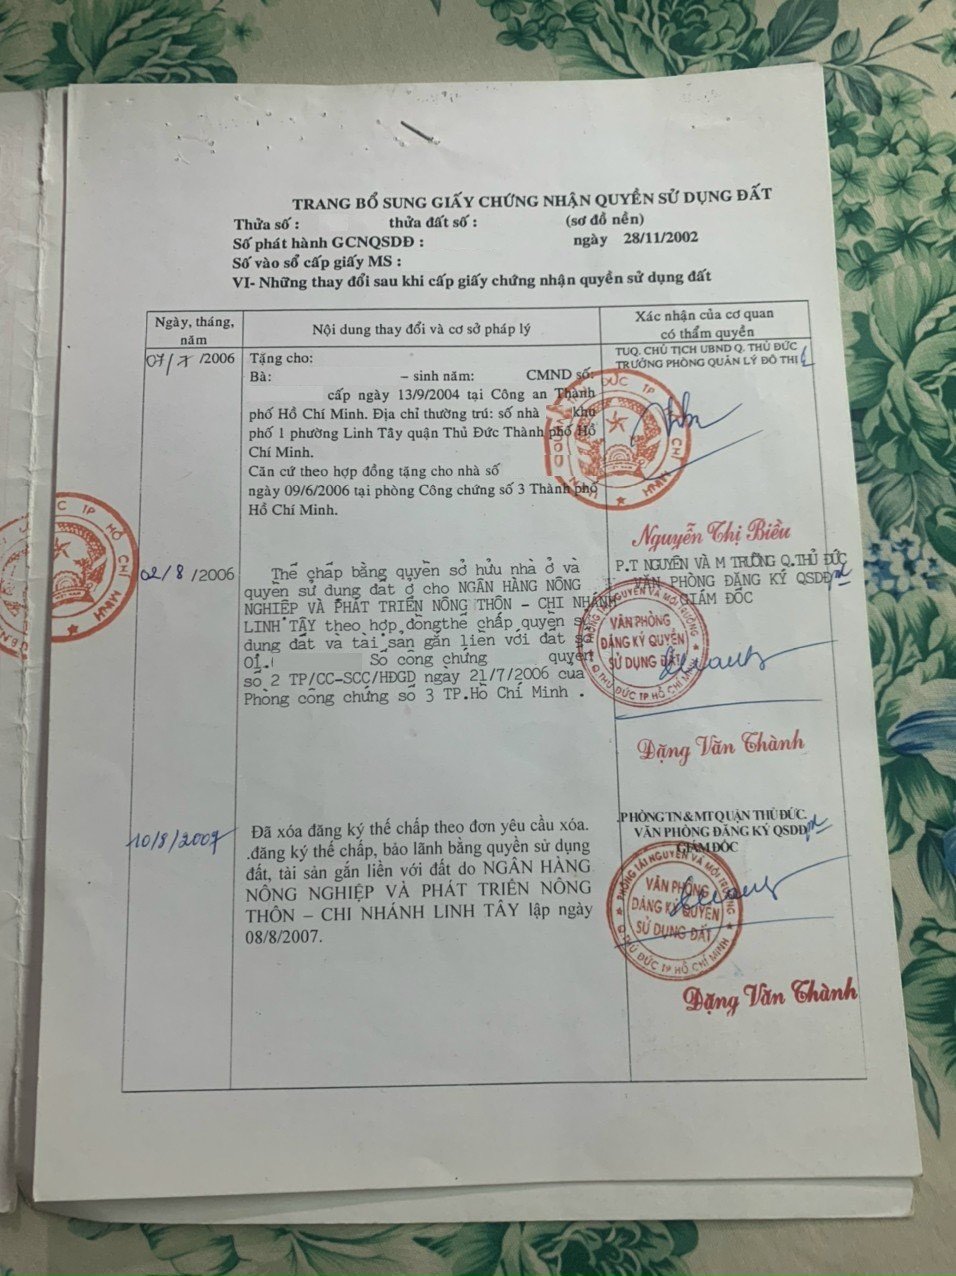 TRANG BỔ SUNG GIẤY CHỨNG NHẬN QUYỀN SỬ DỤNG ĐẤT
Thửa số : thửa đất số : (sơ đồ nền)
Số phát hành GCNQSDĐ : ngày 28/11/2002
Số vào sổ cấp giấy MS :
VI- Những thay đổi sau khi cấp giấy chứng nhận quyền sử dụng đất
Ngày, tháng,
năm
Nội dung thay đổi và cơ sở pháp lý
Xác nhận của cơ quan
có thẩm quyền
07/7 /2006
Tặng cho:
Bà: – sinh năm: CMND số:
cấp ngày 13/9/2004 tại Công an Thành
phố Hồ Chí Minh. Địa chỉ thường trú: số nhà khu
phố 1 phường Linh Tây quận Thủ Đức Thành phố Hồ
Chí Minh.
Căn cứ theo hợp đồng tặng cho nhà số
ngày 09/6/2006 tại phòng Công chứng số 3 Thành phố
Hồ Chí Minh.
TUQ. CHỦ TỊCH UBND Q. THỦ ĐỨC
TRƯỞNG PHÒNG QUẢN LÝ ĐÔ THỊ
Nguyễn Thị Biều
02/8 /2006
Thế chấp bằng quyền sở hữu nhà ở và
quyền sử dụng đất ở cho NGÂN HÀNG NÔNG
NGHIỆP VÀ PHÁT TRIỂN NÔNG THÔN – CHI NHÁNH
LINH TÂY theo hợp đồng thế chấp quyền s
dụng đất và tài sản gắn liền với đất số
01. Số công chứng quyển
số 2 TP/CC-SCC/HĐGD ngày 21/7/2006 của
Phòng công chứng số 3 TP.Hồ Chí Minh .
P.T NGUYÊN VÀ M TRƯỜNG Q.THỦ ĐỨC
VĂN PHÒNG ĐĂNG KÝ QSDĐ
GIÁM ĐỐC
PHÒNG TÀI NGUYÊN VÀ MÔI TRƯỜNG
VĂN PHÒNG
ĐĂNG KÝ QUYỀN
SỬ DỤNG ĐẤT
Q THỦ ĐỨC TP HỒ CHÍ MINH
Đặng Văn Thành
10/8/2007
Đã xóa đăng ký thế chấp theo đơn yêu cầu xóa.
.đăng ký thế chấp, bảo lãnh bằng quyền sử dụng
đất, tài sản gắn liền với đất do NGÂN HÀNG
NÔNG NGHIỆP VÀ PHÁT TRIỂN NÔNG
THÔN – CHI NHÁNH LINH TÂY lập ngày
08/8/2007.
.PHÒNG TN & MT QUẬN THỦ ĐỨC.
VĂN PHÒNG ĐĂNG KÝ QSDĐ
GIÁM ĐỐC
PHÒNG TÀI NGUYÊN VÀ MÔI TRƯỜNG
VĂN PHÒNG
ĐĂNG KÝ QUYỀN
SỬ DỤNG ĐẤT
Q THỦ ĐỨC TP HỒ CHÍ MINH
Đặng Văn Thành